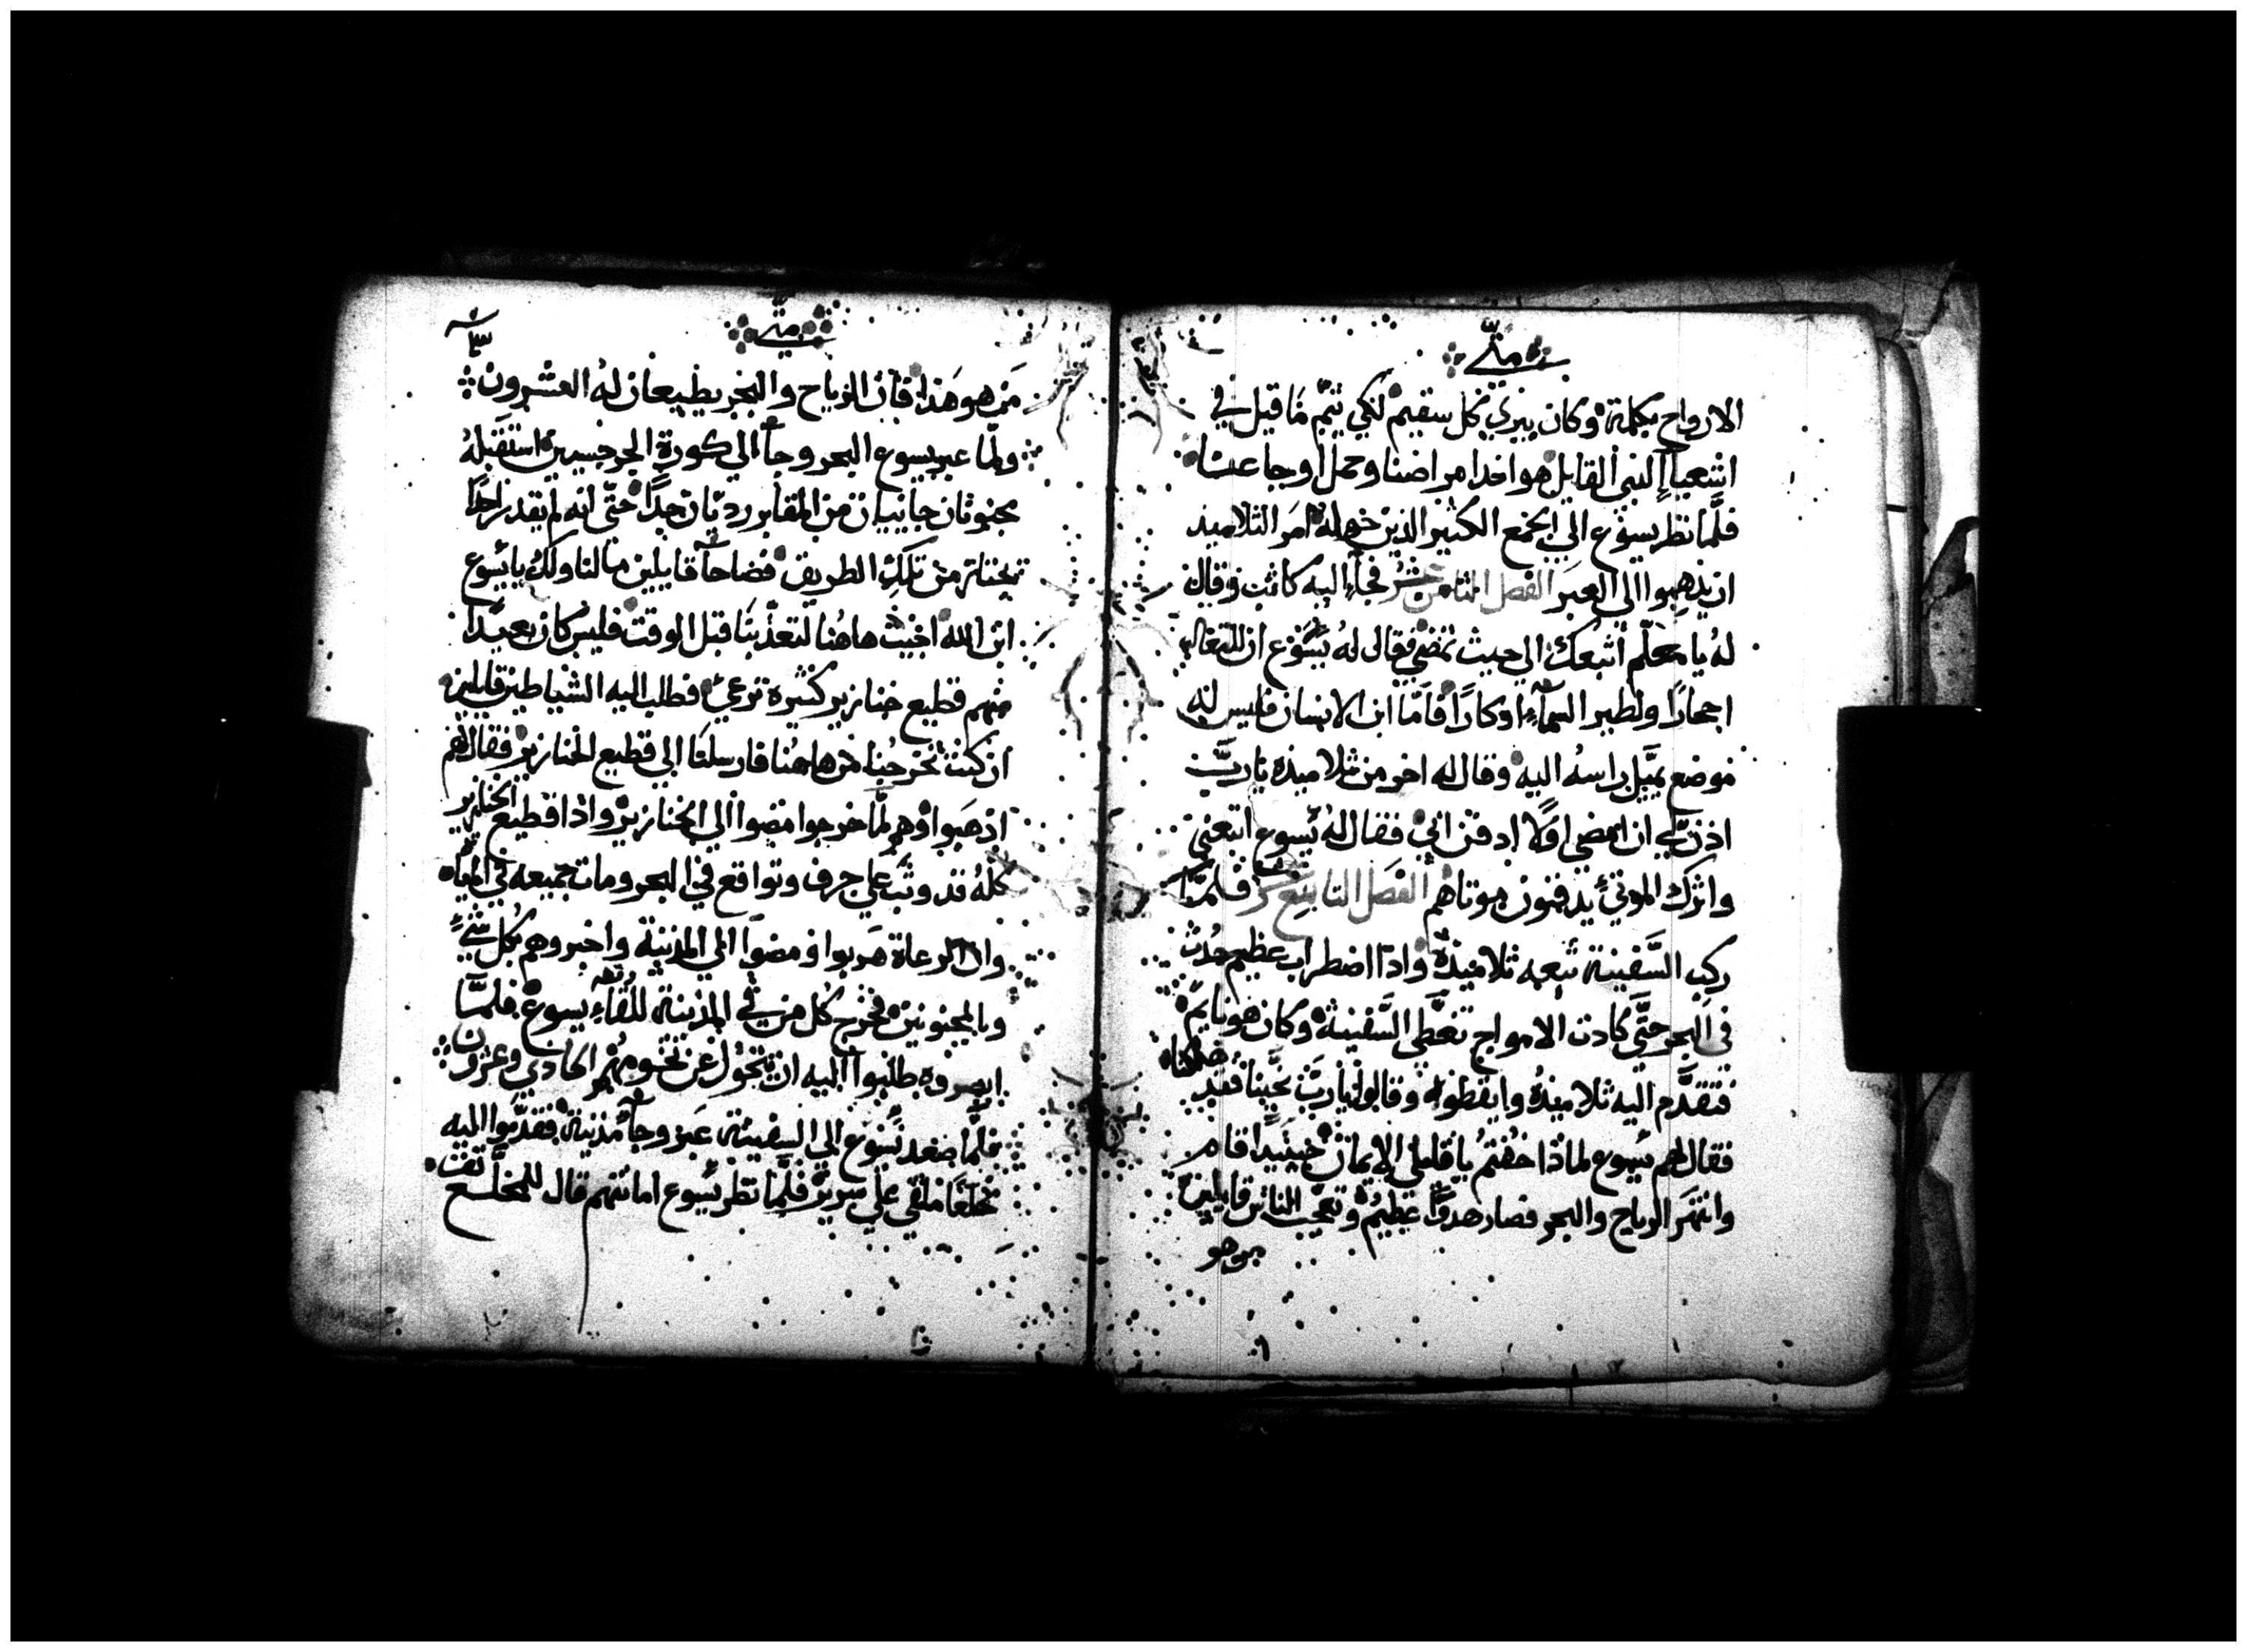 متّى
الارواح بكلمة وكان يبري كل سقيم لكي تتم ما قيل في
اشعيا النبي القايل هو اخذ امراضنا وحمل اوجاعنا
فلمّا نظر يسوع الي الجمع الكثير الذين حوله امر التلاميذ
ان يذهبوا الي العبر الفصل الثامن عشر فجاء اليه كاتب وقال
له يا معلّم اتبعك الي حيث تمضي فقال له يسوع ان للثعالب
اجحارًا ولطير السماء اوكارًا فامّا ابن الانسان فليس له
موضع يميّل راسه اليه وقال له اخر من تلاميذه يا ربّ
اذن لي ان امضي اولًا ادفن ابي فقال له يسوع اتبعني
واترك الموتي يدفنون موتاهم الفصل التاسع عشر فلمّا
ركب السّفينة تبعه تلاميذه واذا اضطراب عظيم حدث
في البحر حتّي كادت الامواج تغطّي السّفينة وكان هو نايم
فتقدّم اليه تلاميذه وايقظوه وقالوا يا ربّ نجّينا فقد هلكنا
فقال لهم يسوع لماذا خفتم يا قليلي الايمان حينيدا قام
وانتهر الرياح والبحر فصار هدوًّا عظيم وتعجّب الناس قايلين
من هو
متّى
من هو هذا فان الرياح والبحر يطيعان له العشرون
ولمّا عبر يسوع البحر وجآ الي كورة الجرجسيين استقبله
مجنونان جانيبان من المقابر رديّان جدًّا حتّي انه لم يقدر احدًا
يجتاز من تلك الطريق فصاحا قايلين ما لنا ولك يا يسوع
ابن الله اجيت هاهنا لتعذّبنا قبل الوقت فليس كان بعيدًا
منهم قطيع خنازير كثيرة ترعي فطلب اليه الشياطين قايلين
ان كنت تخرجنا من هاهنا فارسلنا الي قطيع الخنازير فقال لهم
اذهبوا وهم لمّا خرجوا مضوا الي الخنازير واذا قطيع الخنازير
كله قد وثب علي جرف وتواقع في البحر ومات جميعه في المياه
وان الرعاة هربوا ومضوا الي المدينة واخبروهم بكل شيء
وبالمجنونين فخرج كل من في المدينة للقاء يسوع فلمّا
ابصروه طلبوا اليه ان يتحول عن تخومهم الحادي وعشرون
فلمّا صعد يسوع الي السفينة عبر وجآ مدينته فقدّموا اليه
مخلّعًا ملقي علي سرير فلمّا نظر يسوع امانتهم قال للمخلع